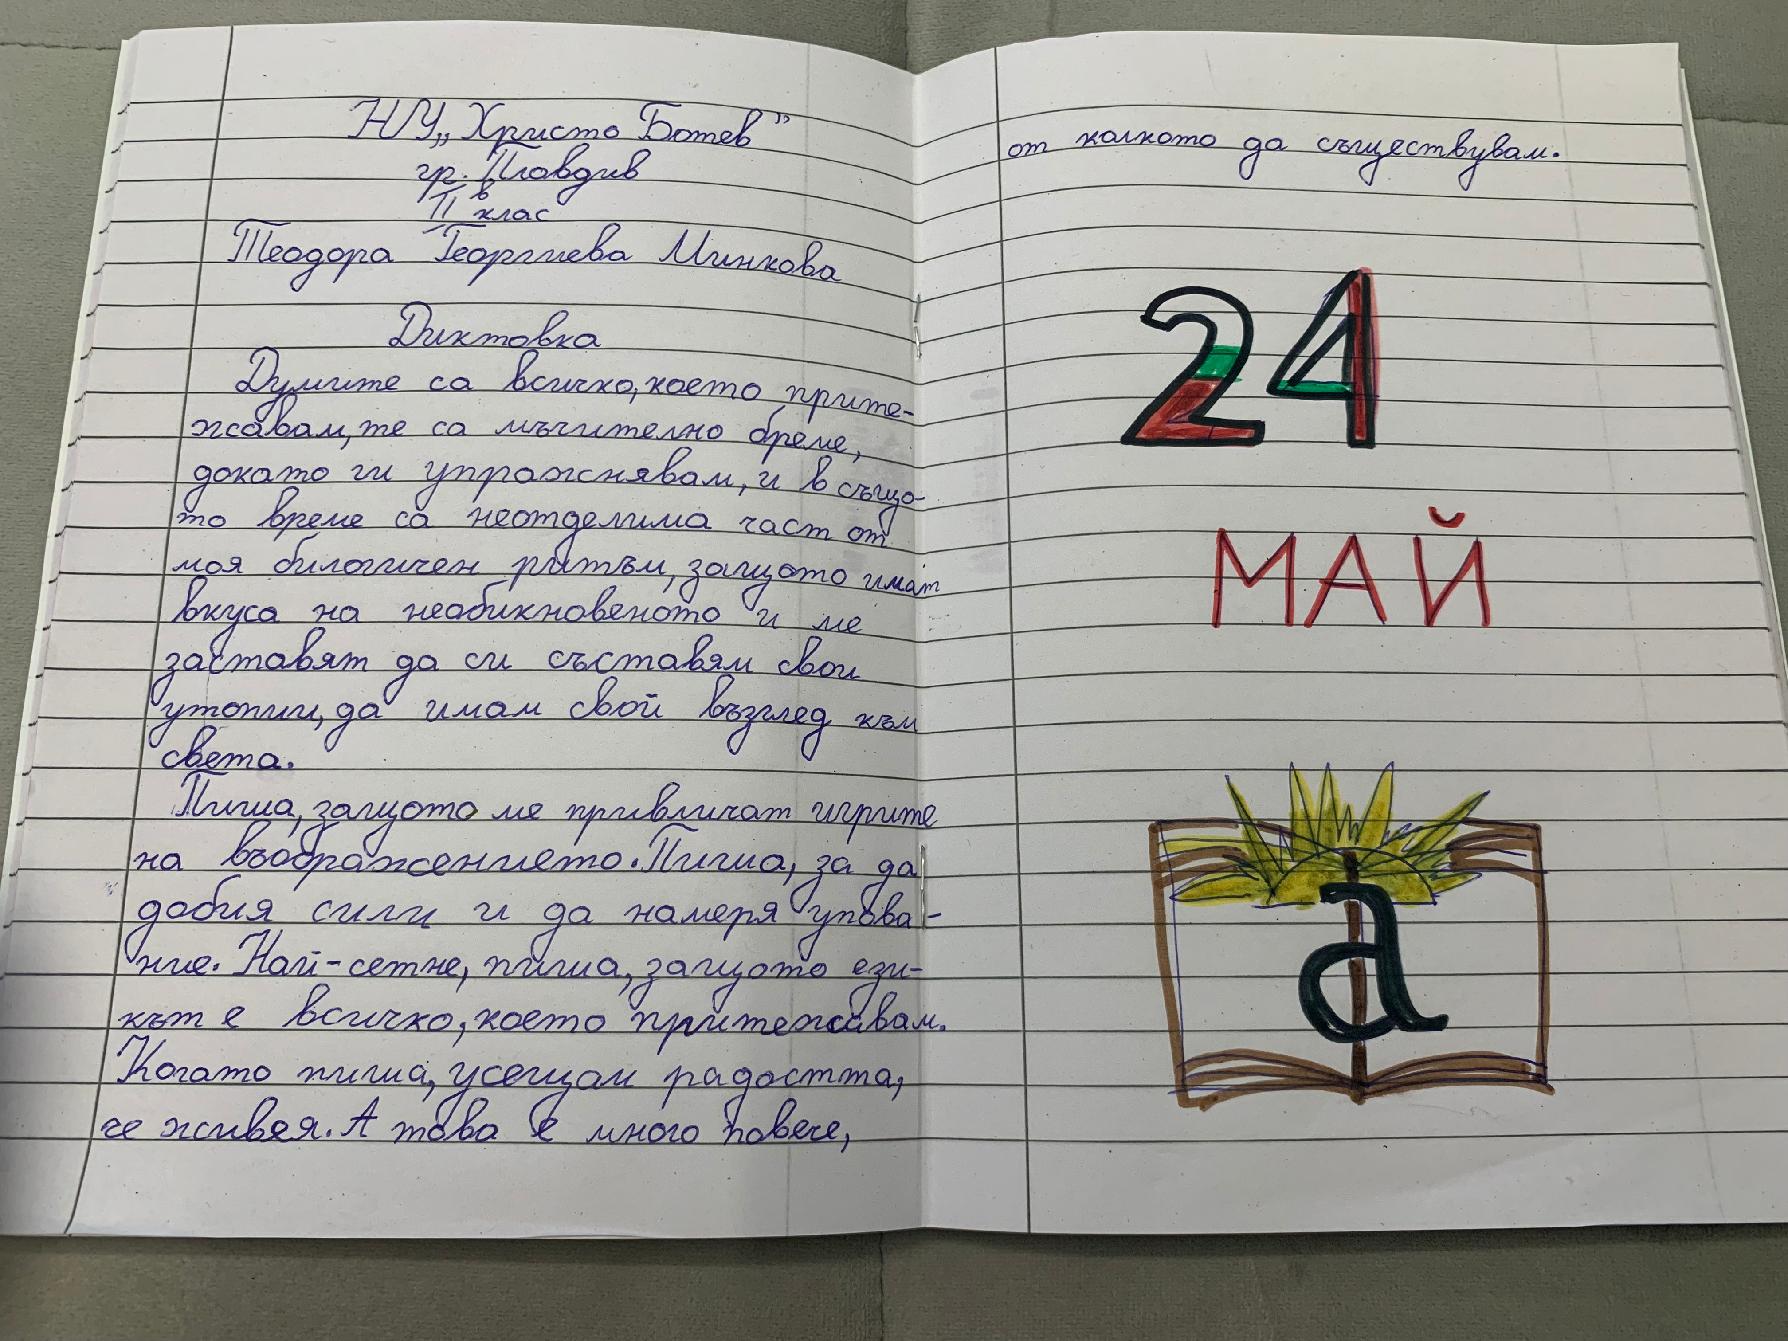 НУ „Христо Ботев"
гр. Пловдив
II в клас
Теодора Георгиева Минкова
Диктовка
Думите са всичко, което прите-
жавам, те са мъчително бреме,
докато ги упражнявам, и в също-
то време са неотделима част от
моя билогичен ритъм, защото имат
вкуса на необикновеното и ме
заставят да си съставям свои
утопии, да имам свой възглед към
света.
Пиша, защото ме привличат игрите
на въображението. Пиша, за да
добия сили и да намеря упова-
ние. Най-сетне, пиша, защото ези-
кът е всичко, което притежавам.
Когато пиша, усещам радостта,
че живея. А това е много повече,
от колкото да съществувам.
24
МАЙ
а